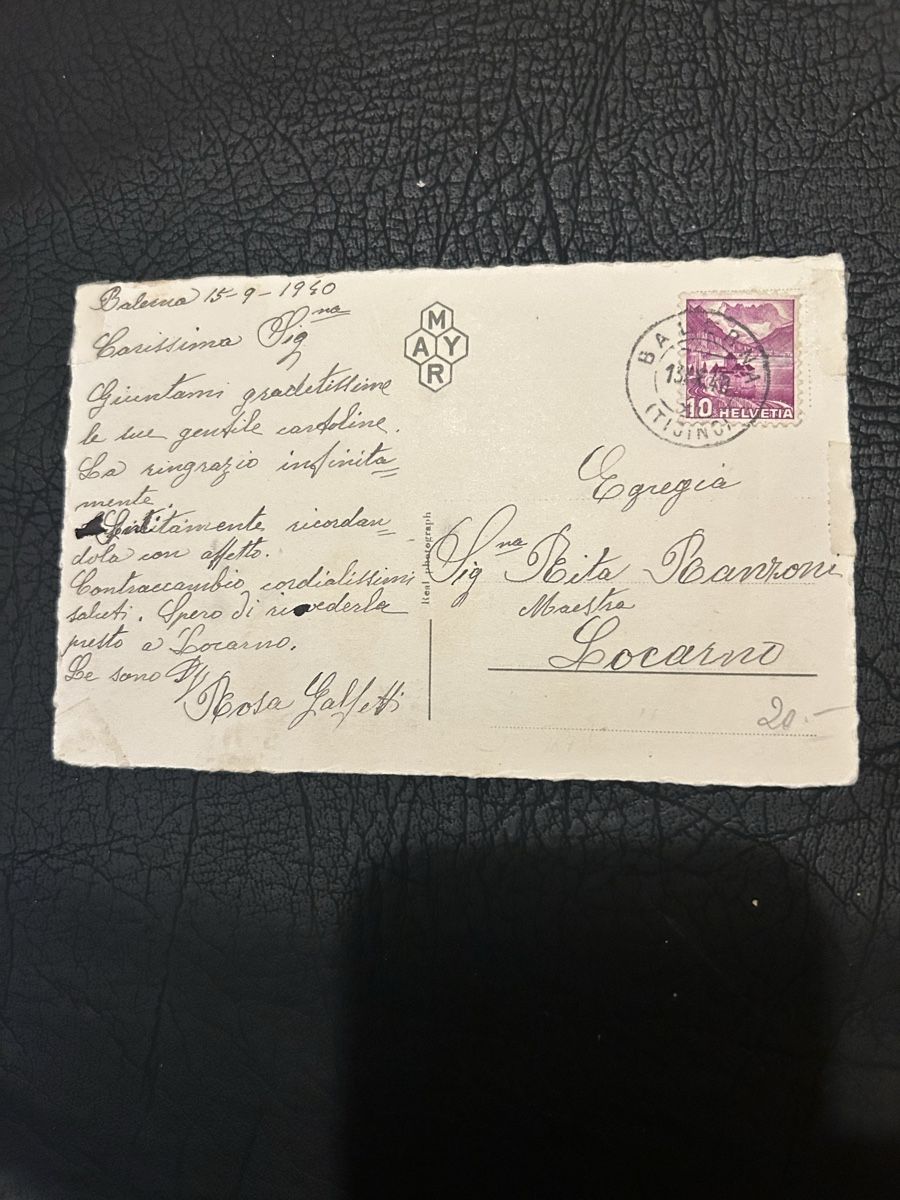 Balerna 15-9-1940
Carissima Signa
Giuntami gradetissime
le sue gentile cartoline.
La ringrazio infinita=
mente.
ricordan=
dola con affetto.
Contraccambio cordialissimi
saluti. Spero di rivederla
presto a Locarno.
Le sono
Rosa Galfetti
MAYR
Real photograph
BALERNA
(TICINO)
10 HELVETIA
Egregia
Signa Rita Ranzoni
Maestra
Locarno
20.—